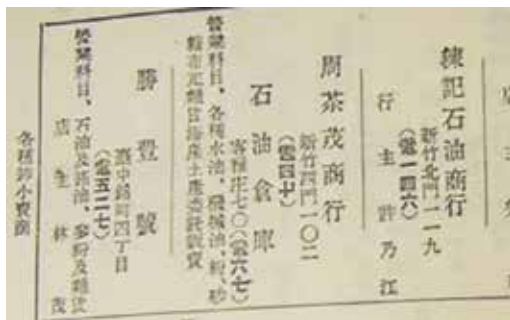 店主
錬記石油商行
新竹北門一一九
(電一四六)
行主許乃江
周茶茂商行
新竹西門一〇二
(電四七)
石油倉庫
客雅庄七〇(電六七)
營業科目、各種水油、機械油、粉、砂
糖市況雜貨海產土產委託販賣
勝豐號
臺中錦町四丁目
(電五二七)
營業科目、石油及茶油、麥粉及雜貨
店主林茂
各種卸小賣商